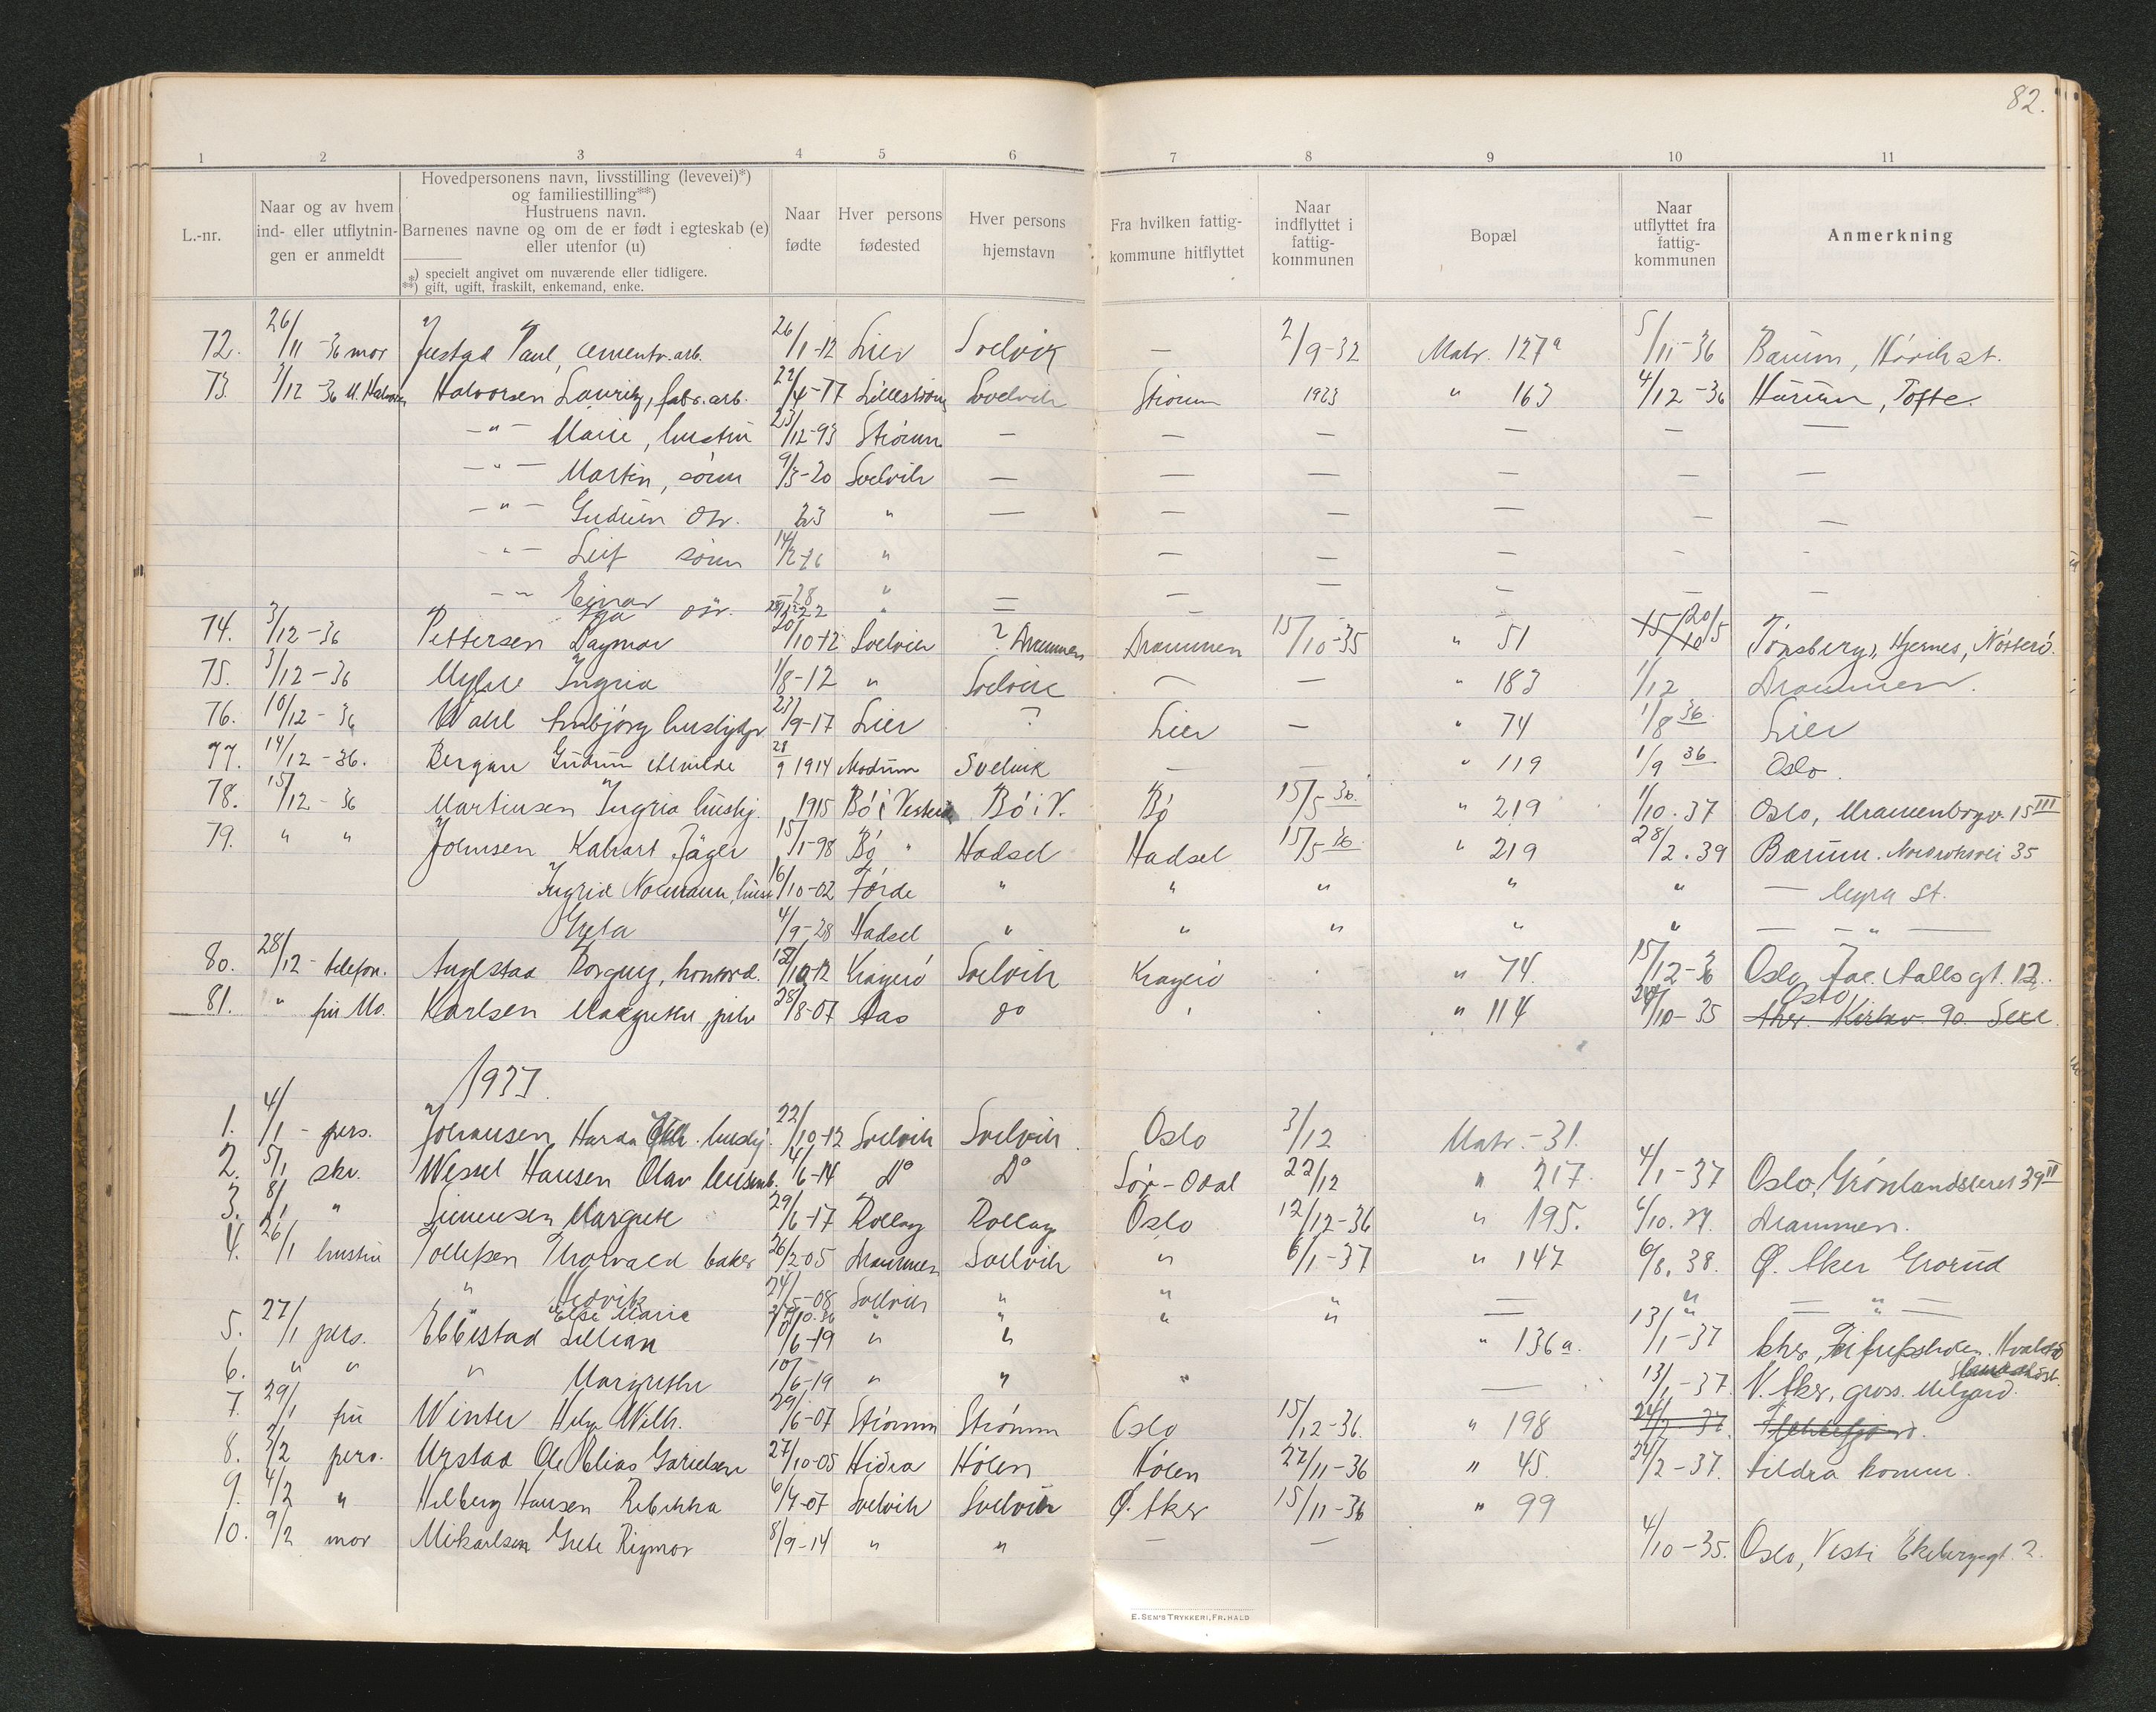 82.
1 2 3 4 5 6 7 8 9 10 11
L.-nr.
Naar og av hvem
ind- eller utflytnin-
gen er anmeldt
Hovedpersonens navn, livsstilling (levevei)*)
og familiestilling**)
Hustruens navn.
Barnenes navne og om de er født i egteskab (e)
eller utenfor (u)
*) specielt angivet om nuværende eller tidligere.
**) gift, ugift, fraskilt, enkemand, enke.
Naar
fødte
Hver persons
fødested
Hver persons
hjemstavn
Fra hvilken fattig-
kommune hitflyttet
Naar
indflyttet i
fattig-
kommunen
Bopæl
Naar
utflyttet fra
fattig-
kommunen
Anmerkning
72. 26/11 - 36 mor Justad Paul, cementv.arb. 26/1-12 Lier Svelvik — 2/9-32 Matr. 127a 5/11-36 Bærum, Hövik st.
73. 3/12 - 36 M. Halvorsen Halvorsen Lauritz, fabr.arb. 22/4-77 Lilleström Svelvik Strömm 1923 " 163 4/12-36 Hurum, Tofte.
— " — Marie, hustru 23/12-93 Strömm — — — — — —
— " — Martin, sönn 9/3-20 Svelvik — — — — — —
— " — Gudrun dtr. 23 " — — — — — —
— " — Leif sönn 14/2-26 " — — — — —
— " — Einar -28 " — — — — — —
dtr. 22 "
74. 3/12-36 Pettersen Dagmar 20/10-12 Svelvik ? Drammen Drammen 15/10-35 " 51 15/10 20/5 Tönsberg, Hjemes, Nötterö.
75. 3/12-36 Myhre Ingrid 1/8-12 " Svelvik — — " 183 1/12 Drammen.
76. 10/12-36 Wahl Annbjörg huslighjp 23/9-17 Lier ? Lier — " 74 1/8 36 Lier
77. 14/12-36. Bergan Gudrun Alvilde 28/9 1914 Modum Svelvik — — " 119 1/9 36 Oslo.
78. 15/12-36 Martinsen Ingrid hushj. 1915 Bö i Vesterå Bö i V. Bö 15/5 36. " 219 1/10.37 Oslo, 15 III
79. " " Johnsen Kalvart Jäger 15/1-98 Bö " Hadsel Hadsel 15/5 36 " 219 28/2.39 Bærum. 35
Ingrid Normann, hustr 16/10-02 Förde " " " " " — st.
Greta 4/9-28 Hadsel " " " " " — " —
80. 28/12 - telefon. Anglstad Borguny, kontord. 12/10-12 Kragerö Svelvik Kragerö " 74. 15/12-36 Oslo, Jac. Aallsgt. 12.
81. " fru Mo. Karlsen Margrethe, priv 28/8-07 Aas do " 114 24/10-35 Oslo Aker. Kirkev. 90.
1937.
1. 4/1 - pers. Johansen Harda hushj. 22/10-12 Svelvik Svelvik. Oslo 3/12 Matr. - 31.
2. 5/1 skr. Wessel Hansen Olav 4/6-14 Do Do Sör-Odal 22/12 " 217. 4/1-37 Oslo, Grönlandsleret 39 II
3. 8/1 " Simensen Margrete 29/6-17 Rollag Rollag Oslo 12/12-36 " 195. 6/10.37. Drammen.
4. 26/1 hustru Tollefsen Thorvald baker 26/2-05 Drammen Svelvik " 6/1-37 " 147 6/8.38. Ø. Aker Grorud
" Hedvik 24/5-08 Svelvik " " " — " — " —
Else Maria 10.36 " " " "
5. 27/1 pers. Ebbestad Lillian 10/6-19 " " " 136a. 13/1-37 Aker,
6. " " " Margrethe 10/6-19 " " " — 13/1-37. V. Aker, gross.
7. 29/1 fru Winter Helge Wilh. 29/6-07 Strömm Strömm Oslo 15/12-36. " 198 24/2-37.
8. 3/2 pers. Urstad Ole Elias Gabrielsen 27/10-05 Hidra Hölen Hölen 27/11-36 " 45. 24/2-37. Hidra komm.
9. 4/2 " Hilberg Hansen Rebekka 6/4-07 Svelvik Svelvik Ø. Aker 15/11-36 " 99
10. 9/2 mor Mikarlsen Grete Rigmor 8/9-14 " " — — 4/10-35. Oslo, Vesti Ekebergsgt. 2.
E. SEM'S TRYKKERI, FR.HALD